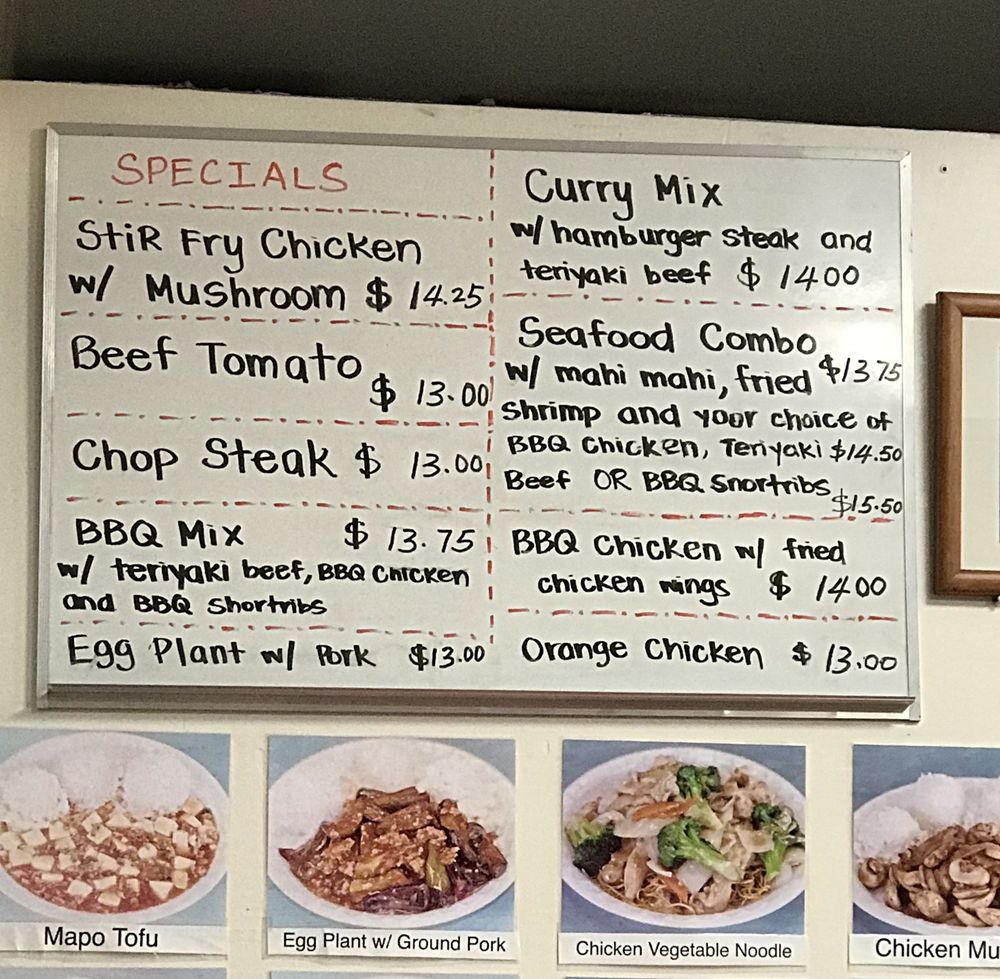 SPECIALS
StiR Fry Chicken
w/ Mushroom $ 14.25
Beef Tomato
$ 13.00
Chop Steak $ 13.00
BBQ Mix $ 13.75
w/ teriyaki beef, BBQ Chicken
and BBQ Shortribs
Egg Plant w/ Pork $13.00
Curry Mix
w/ hamburger steak and
teriyaki beef $ 1400
Seafood Combo
w/ mahi mahi, fried $1375
Shrimp and your choice of
BBQ Chicken, Teriyaki $14.50
Beef OR BBQ Shortribs
$15.50
BBQ Chicken w/ fried
chicken wings $ 1400
Orange Chicken $ 13.00
Mapo Tofu
Egg Plant w/ Ground Pork
Chicken Vegetable Noodle
Chicken Mu